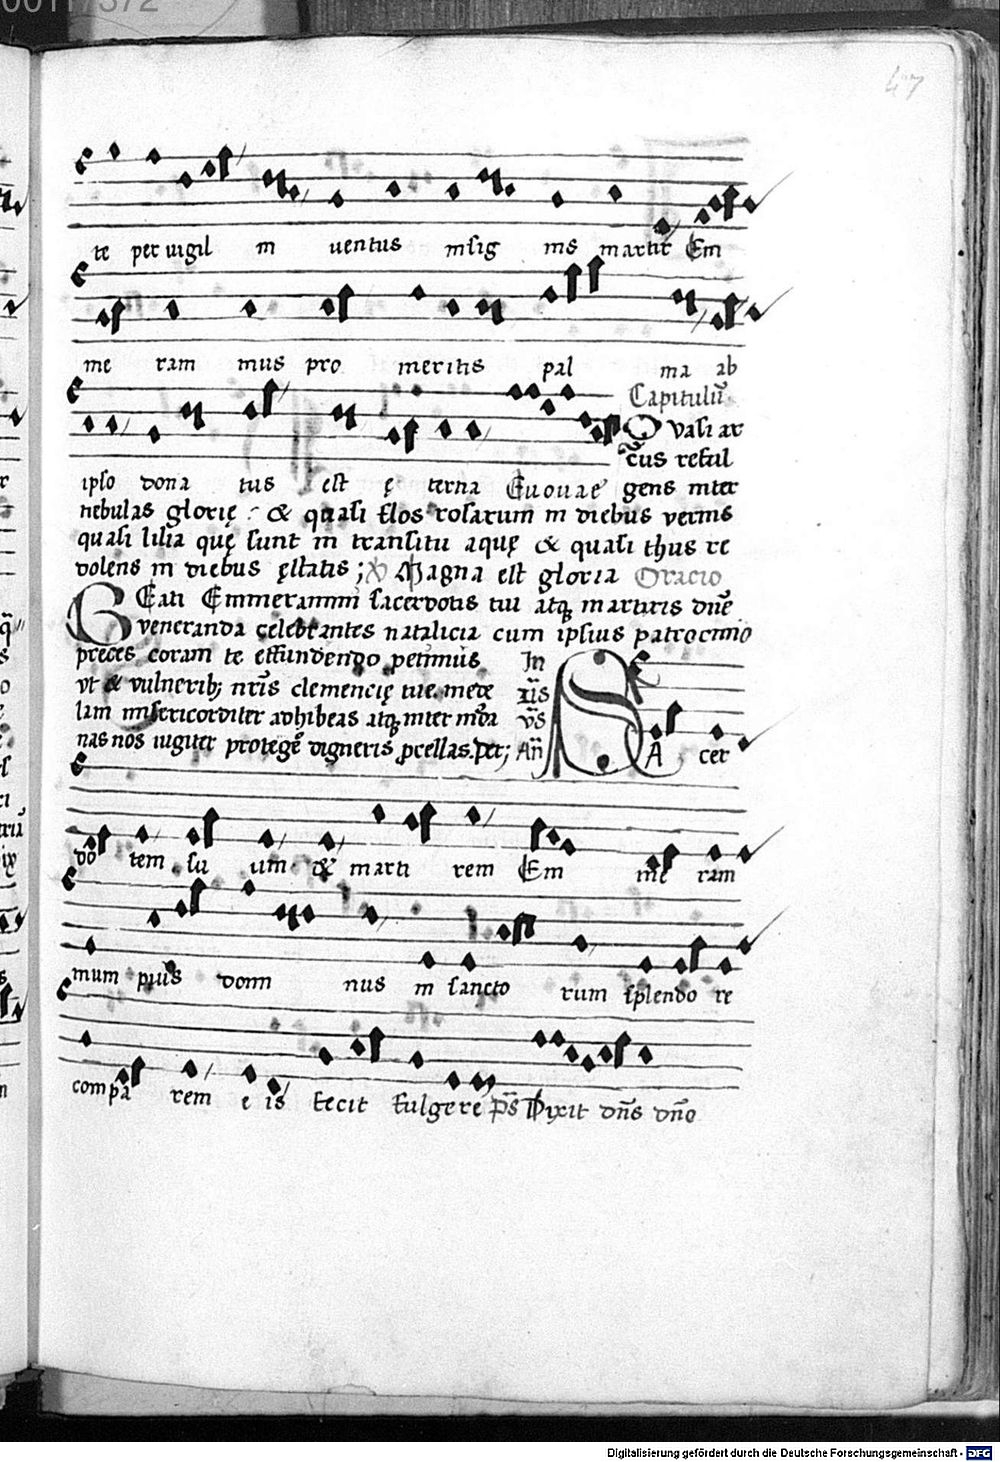 47
te per uigil in uentus insig nis martir Em
me ram mus pro meritis pal ma ab
Capitulū
Quasi ar
cus reful
ipso dona tus est ę terna Euouae gens inter
nebulas glorię : & quasi flos rosarum in diebus vernis
quasi lilia quę sunt in transitu aquę & quasi thus re
dolens in diebus ęstatis ; Magna est gloria Oracio
BEati Emmerammi sacerdotis tui atq martiris dn̄e
veneranda celebrantes natalicia cum ipsius patrocinio
preces coram te effundendo petimus
vt & vulnerib; nr̄is clemencię tue mede
lam misericorditer adhibeas atq inter
nas nos iugiter protegē digneris ꝓcellas. Per;
In
vs̄
An̄ SAcer
do tem su um & marti rem Em me ram
mum pius domi nus in sancto rum splendo re
compa rem e is fecit fulgere ps̄ Dixit dn̄s dn̄o
Digitalisierung gefördert durch die Deutsche Forschungsgemeinschaft - DFG